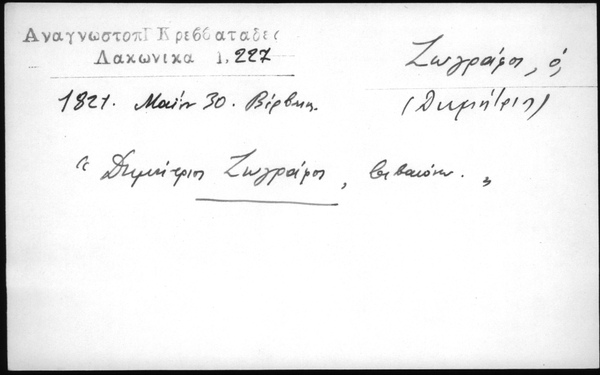 Αναγνωστοπ Κρεββαταδες
Λακωνικα 1, 227
Ζωγράφος, ὁ,
1821. Μαΐου 30. Βέρβενα.
(Δημήτριος)
"Δημήτριος Ζωγράφος, βεβαιώνω."